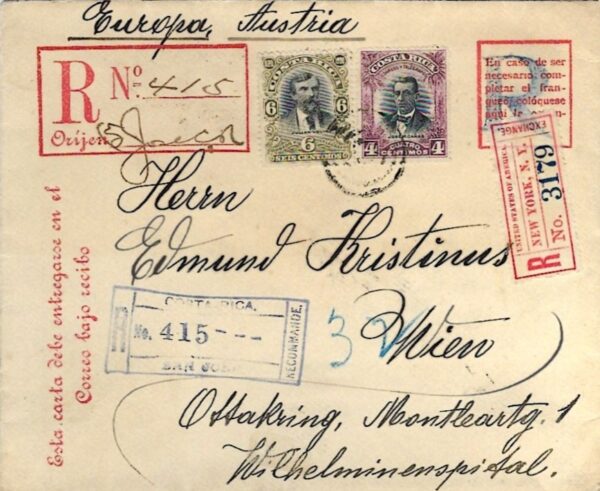 Europa, Austria
R Nº 415
Oríjen
S. José
COSTA RICA
6 6
6
SEIS CENTIMOS
COSTA RICA
4 4
CUATRO CENTIMOS
En caso de ser
necesario com-
pletar el fran-
queo, colóquese
aquí
EXCHANGE.
UNITED STATES OF AMERICA
NEW YORK, N. Y.
R No. 3179
Herrn
Edmund Kristinus
Wien
COSTA RICA.
R No. 415---
SAN JOSE
RECOMMANDE.
Ottakring, Montleartg. 1
Wilhelminenspital.
Esta carta debe entregarse en el
Correo bajo recibo